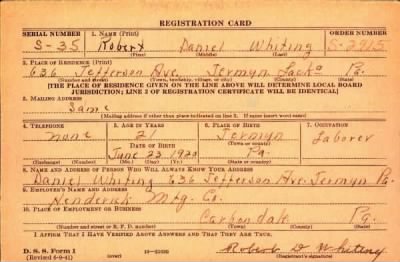 REGISTRATION CARD
SERIAL NUMBER 1. NAME (Print) ORDER NUMBER
S-35 Robert Daniel Whiting S-2915
(First) (Middle) (Last)
2. PLACE OF RESIDENCE (Print)
636 Jefferson Ave. Jermyn Lacka Pa.
(Number and street) (Town, township, village, or city) (County) (State)
[THE PLACE OF RESIDENCE GIVEN ON THE LINE ABOVE WILL DETERMINE LOCAL BOARD
JURISDICTION; LINE 2 OF REGISTRATION CERTIFICATE WILL BE IDENTICAL]
3. MAILING ADDRESS
Same
[Mailing address if other than place indicated on line 2. If same insert word same]
4. TELEPHONE 5. AGE IN YEARS 6. PLACE OF BIRTH 7. OCCUPATION
none 21 Jermyn Laborer
DATE OF BIRTH (Town or county)
June 23 1920 Pa.
(Exchange) (Number) (Mo.) (Day) (Yr.) (State or country)
8. NAME AND ADDRESS OF PERSON WHO WILL ALWAYS KNOW YOUR ADDRESS
Daniel Whiting 636 Jefferson Ave. Jermyn Pa.
9. EMPLOYER'S NAME AND ADDRESS
Hendrick Mfg. Co.
10. PLACE OF EMPLOYMENT OR BUSINESS
Carbondale Pa.
(Number and street or R. F. D. number) (Town) (County) (State)
I AFFIRM THAT I HAVE VERIFIED ABOVE ANSWERS AND THAT THEY ARE TRUE.
D. S. S. Form 1 Robert D Whiting
(Revised 6-9-41) (over) (Registrant's signature)